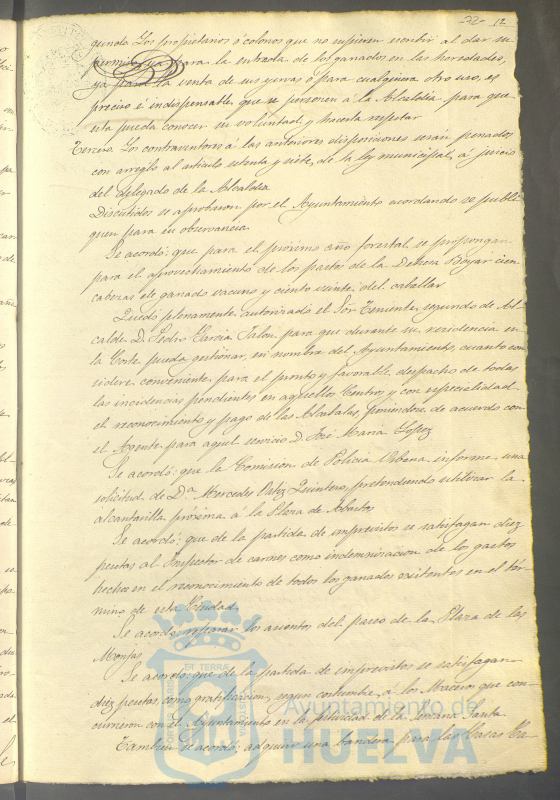 22 12
gunda Los propietarios ó colonos que no supiesen escribir al dar su
permiso ya para la entrada de los ganados en las heredades,
ya para la venta de sus yerbas ó para cualquiera otro uso, es
preciso é indispensable, que se personen á la Alcaldia para que
esta pueda conocer su voluntad y hacerla respetar
Tercera. Los contraventores á las anteriores disposiciones serán penados
con arreglo al articulo setenta y siete, de la ley municipal, á juicio
del delegado de la Alcaldia
Discutidos se aprobaron por el Ayuntamiento acordando se publi-
quen para su observancia.
Se acordó: que para el próximo año forestal se propongan
para el aprovechamiento de los pastos de la Dehesa Boyar cien
cabezas de ganado vacuno y ciento veinte del caballar
Quedó plenamente autorizado el Sor. Teniente segundo de Al-
calde D. Pedro Garcia Jalon para que durante su residencia en
la Corte pueda gestionar, en nombre del Ayuntamiento, cuanto con
sidere conveniente para el pronto y favorable despacho de todas
las incidencias pendientes en aquellos Centros y con especialidad
el reconocimiento y pago de las Alcabalas, poniendose de acuerdo con
el Agente para aquel servicio D. José Maria Lopez
Se acordó: que la Comision de Policia Urbana informe una
solicitud de D.ª Mercedes Ortiz Quintero, pretendiendo utilizar la
alcantarilla próxima á la Plaza de Abastos
Se acordó: que de la partida de imprevistos se satisfagan diez
pesetas al Inspector de carnes como indemnizacion de los gastos
hechos en el reconocimiento de todos los ganados existentes en el tér-
mino de esta Ciudad.
Se acordó reparar los asientos del paseo de la Plaza de las
Monjas.
Se acordó: que de la partida de imprevistos se satisfagan
diez pesetas como gratificacion, segun costumbre, á los Maceros que con-
currieron con el Ayuntamiento en la festividad de la Semana Santa
Tambien se acordó: adquirir una bandera para las Casas Ca-
Ayuntamiento de
HUELVA